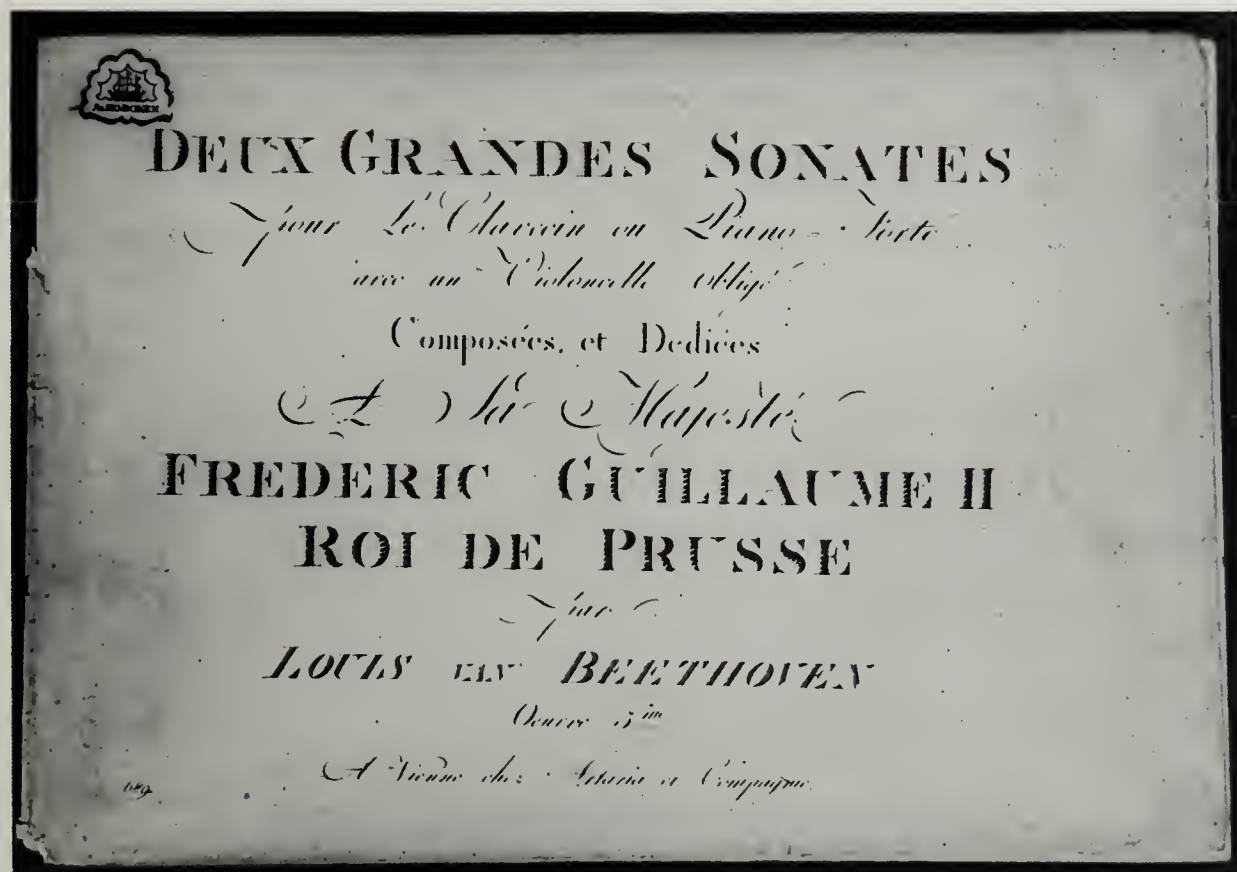 DEUX GRANDES SONATES
pour Le Clavecin ou Piano=Forte
avec un Violoncelle obligé
Composées, et Dediées
A Sa Majesté
FREDERIC GUILLAUME II
ROI DE PRUSSE
par
LOUIS VAN BEETHOVEN
Oeuvre 5me
A Vienne chez Artaria et Compagnie.
689.